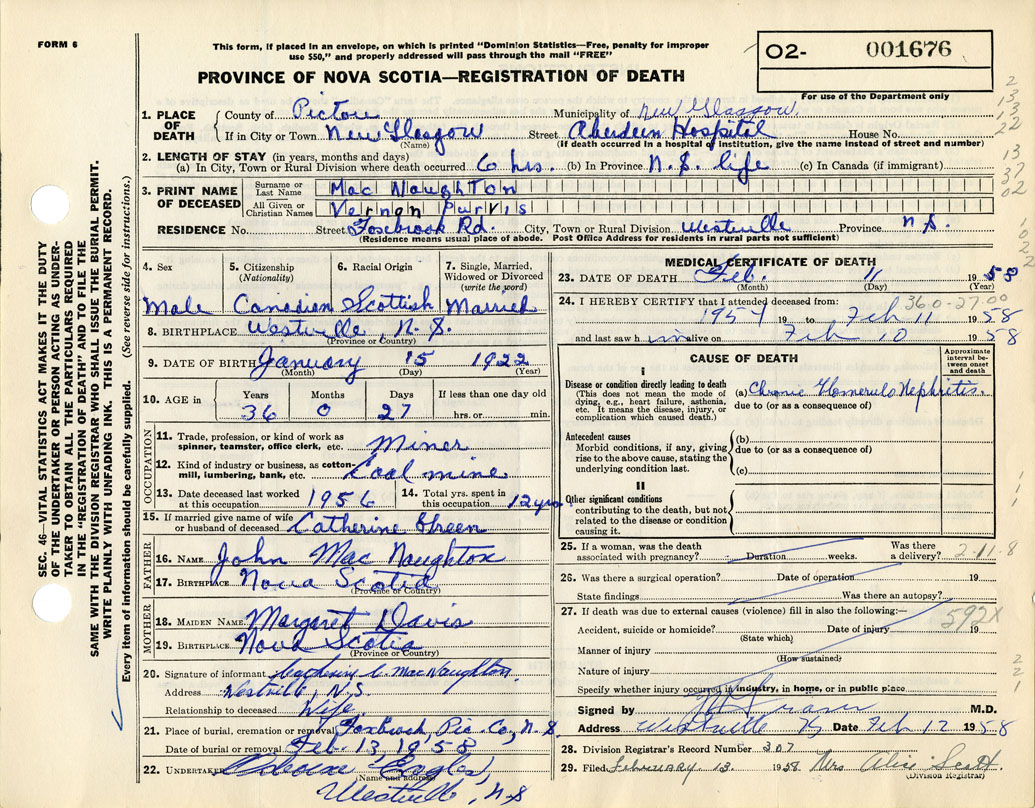 FORM 6
This form, if placed in an envelope, on which is printed "Dominion Statistics—Free, penalty for improper
use $50," and properly addressed will pass through the mail "FREE"
O2- 001676
For use of the Department only
PROVINCE OF NOVA SCOTIA—REGISTRATION OF DEATH
1. PLACE OF DEATH
County of Pictou Municipality of New Glasgow
If in City or Town New Glasgow Street Aberdeen Hospital House No.
(Name) (If death occurred in a hospital of institution, give the name instead of street and number)
2. LENGTH OF STAY (in years, months and days)
(a) In City, Town or Rural Division where death occurred 6 hrs. (b) In Province N.S. life (c) In Canada (if immigrant)
3. PRINT NAME OF DECEASED
Surname or Last Name Mac Naughton
All Given or Christian Names Vernon Purvis
RESIDENCE No. Street Foxbrook Rd. City, Town or Rural Division Westville Province N.S.
(Residence means usual place of abode. Post Office Address for residents in rural parts not sufficient)
4. Sex 5. Citizenship (Nationality) 6. Racial Origin 7. Single, Married, Widowed or Divorced (write the word)
Male Canadian Scottish Married
8. BIRTHPLACE Westville, N.S.
(Province or Country)
9. DATE OF BIRTH January 15 1922
(Month) (Day) (Year)
10. AGE in Years Months Days If less than one day old
36 0 27 hrs. or min.
OCCUPATION
11. Trade, profession, or kind of work as
spinner, teamster, office clerk, etc. Miner
12. Kind of industry or business, as cotton-
mill, lumbering, bank, etc. Coal mine
13. Date deceased last worked
at this occupation 1956
14. Total yrs. spent in
this occupation 12 yrs
15. If married give name of wife
or husband of deceased Catherine Green
FATHER
16. NAME John Mac Naughton
17. BIRTHPLACE Nova Scotia
(Province or Country)
MOTHER
18. MAIDEN NAME Margaret Davis
19. BIRTHPLACE Nova Scotia
(Province or Country)
20. Signature of informant Catherine C. MacNaughton.
Address Westville, N.S.
Relationship to deceased Wife.
21. Place of burial, cremation or removal Foxbrook, Pic. Co, N.S.
Date of burial or removal Feb. 13, 1958
22. UNDERTAKER
(Name and address)
Westville, N.S
MEDICAL CERTIFICATE OF DEATH
23. DATE OF DEATH Feb. 11 1958
(Month) (Day) (Year)
360-27.00
24. I HEREBY CERTIFY that I attended deceased from:
1954 19 to Feb 11 1958
and last saw him alive on Feb 10 1958
CAUSE OF DEATH
Approximate interval between onset and death
I
Disease or condition directly leading to death
(This does not mean the mode of
dying, e.g., heart failure, asthenia,
etc. It means the disease, injury, or
complication which caused death.)
(a) Chronic Glomerulo Nephritis.
due to (or as a consequence of)
Antecedent causes
Morbid conditions, if any, giving
rise to the above cause, stating the
underlying condition last.
(b)
due to (or as a consequence of)
(c)
II
Other significant conditions
contributing to the death, but not
related to the disease or condition
causing it.
25. If a woman, was the death
associated with pregnancy? Duration weeks. Was there
a delivery? 2-11-8
26. Was there a surgical operation? Date of operation 19
State findings Was there an autopsy?
27. If death was due to external causes (violence) fill in also the following:—
592X
Accident, suicide or homicide? Date of injury 19
(State which)
Manner of injury
(How sustained)
Nature of injury
Specify whether injury occurred in industry, in home, or in public place
Signed by M.D.
Address Westville Date Feb 12 1958
28. Division Registrar's Record Number 307
29. Filed February 13. 1958 Mrs Alice Scott.
(Division Registrar)
SEC. 46—VITAL STATISTICS ACT MAKES IT THE DUTY
OF THE UNDERTAKER OR PERSON ACTING AS UNDER-
TAKER TO OBTAIN ALL THE PARTICULARS REQUIRED
IN THE "REGISTRATION OF DEATH" AND TO FILE THE
SAME WITH THE DIVISION REGISTRAR WHO SHALL ISSUE THE BURIAL PERMIT.
WRITE PLAINLY WITH UNFADING INK. THIS IS A PERMANENT RECORD.
Every item of information should be carefully supplied. (See reverse side for instructions.)
2
13
13
22
13
37
02